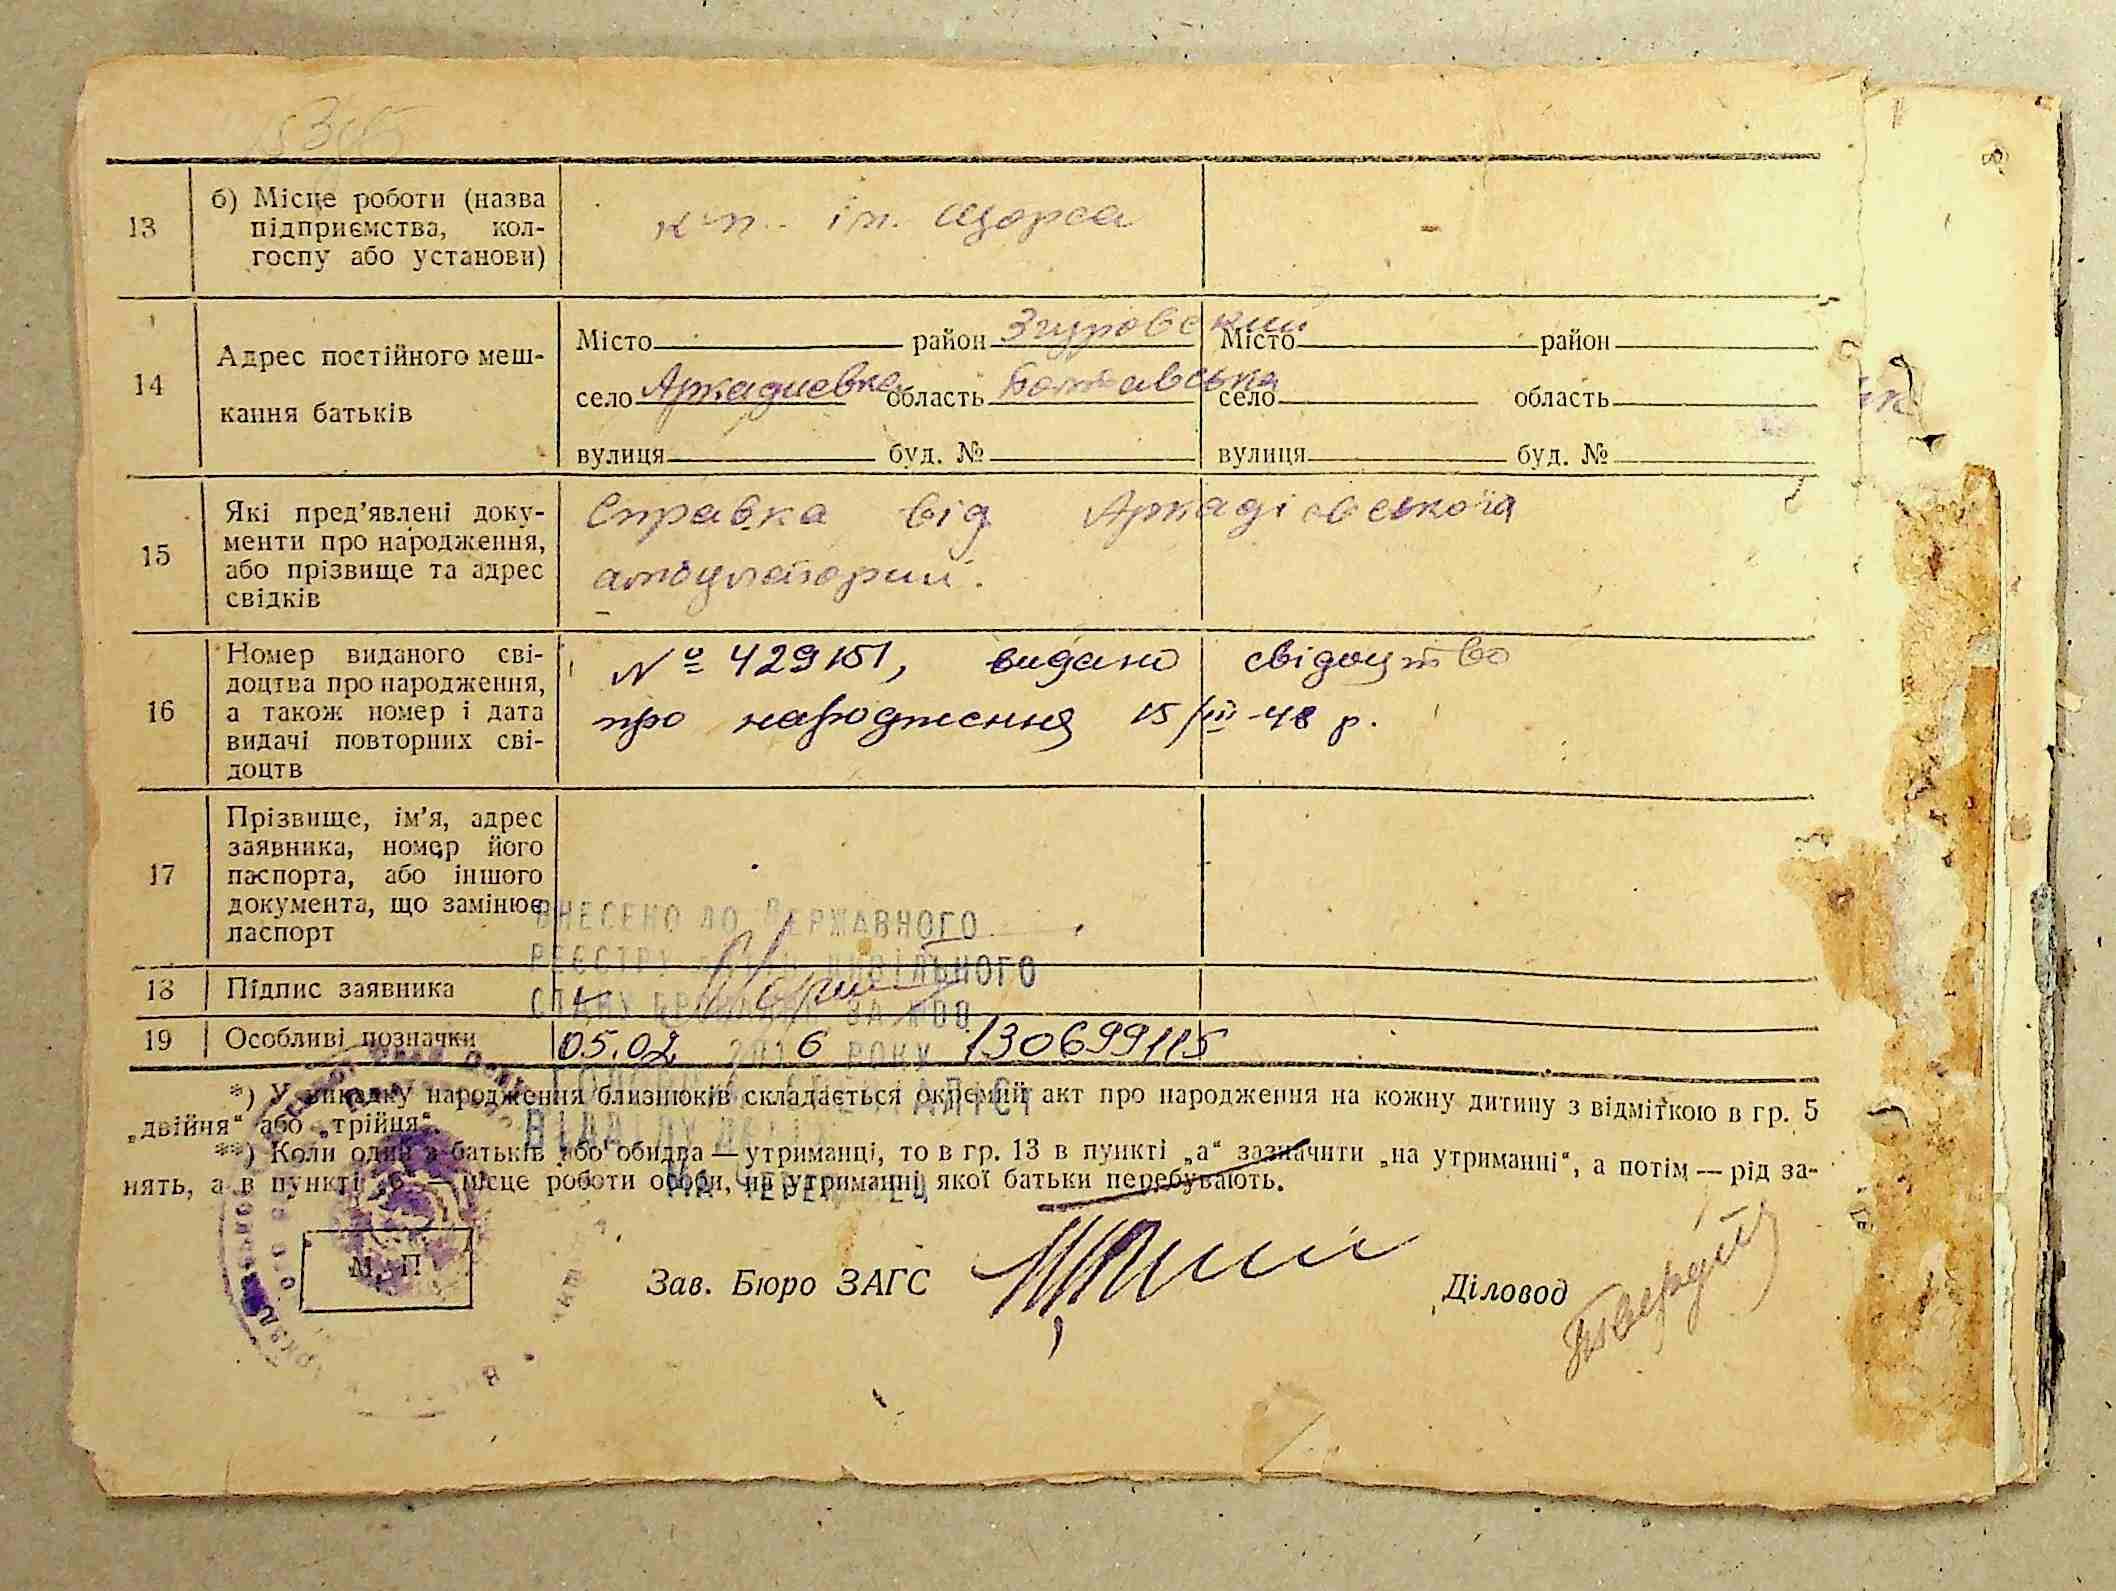 13
б) Місце роботи (назва
підприємства, кол-
госпу або установи)
к-п. ім. Щорса
-
14
Адрес постійного меш-
кання батьків
Місто район Згуровский
село Аркадиевка область Полтавська
вулиця буд. №
Місто район
село область
вулиця буд. №
15
Які пред’явлені доку-
менти про народження,
або прізвище та адрес
свідків
Справка від Аркадівської
амбулатории.
16
Номер виданого сві-
доцтва про народження,
а також номер і дата
видачі повторних сві-
доцтв
№ 429151, видано свідоцтво
про народження 15/III-48 р.
17
Прізвище, ім’я, адрес
заявника, номер його
паспорта, або іншого
документа, що замінює
паспорт
ВНЕСЕНО ДО ДЕРЖАВНОГО
РЕЄСТРУ АКТІВ ЦИВІЛЬНОГО
СТАНУ ГРОМАДЯН ЗА №00
18
Підпис заявника
19
Особливі позначки
05.02 2016 РОКУ 130699115
ГОЛОВНИЙ СПЕЦІАЛІСТ
ВІДДІЛУ
*) У випадку народження близнюків складається окремий акт про народження на кожну дитину з відміткою в гр. 5
„двійня“ або „трійня“.
**) Коли один з батьків або обидва — утриманці, то в гр. 13 в пункті „а“ зазначити „на утриманні“, а потім — рід за-
нять, а в пункті „б“ — місце роботи особи, на утриманні якої батьки перебувають.
М. П.
Зав. Бюро ЗАГС
Діловод